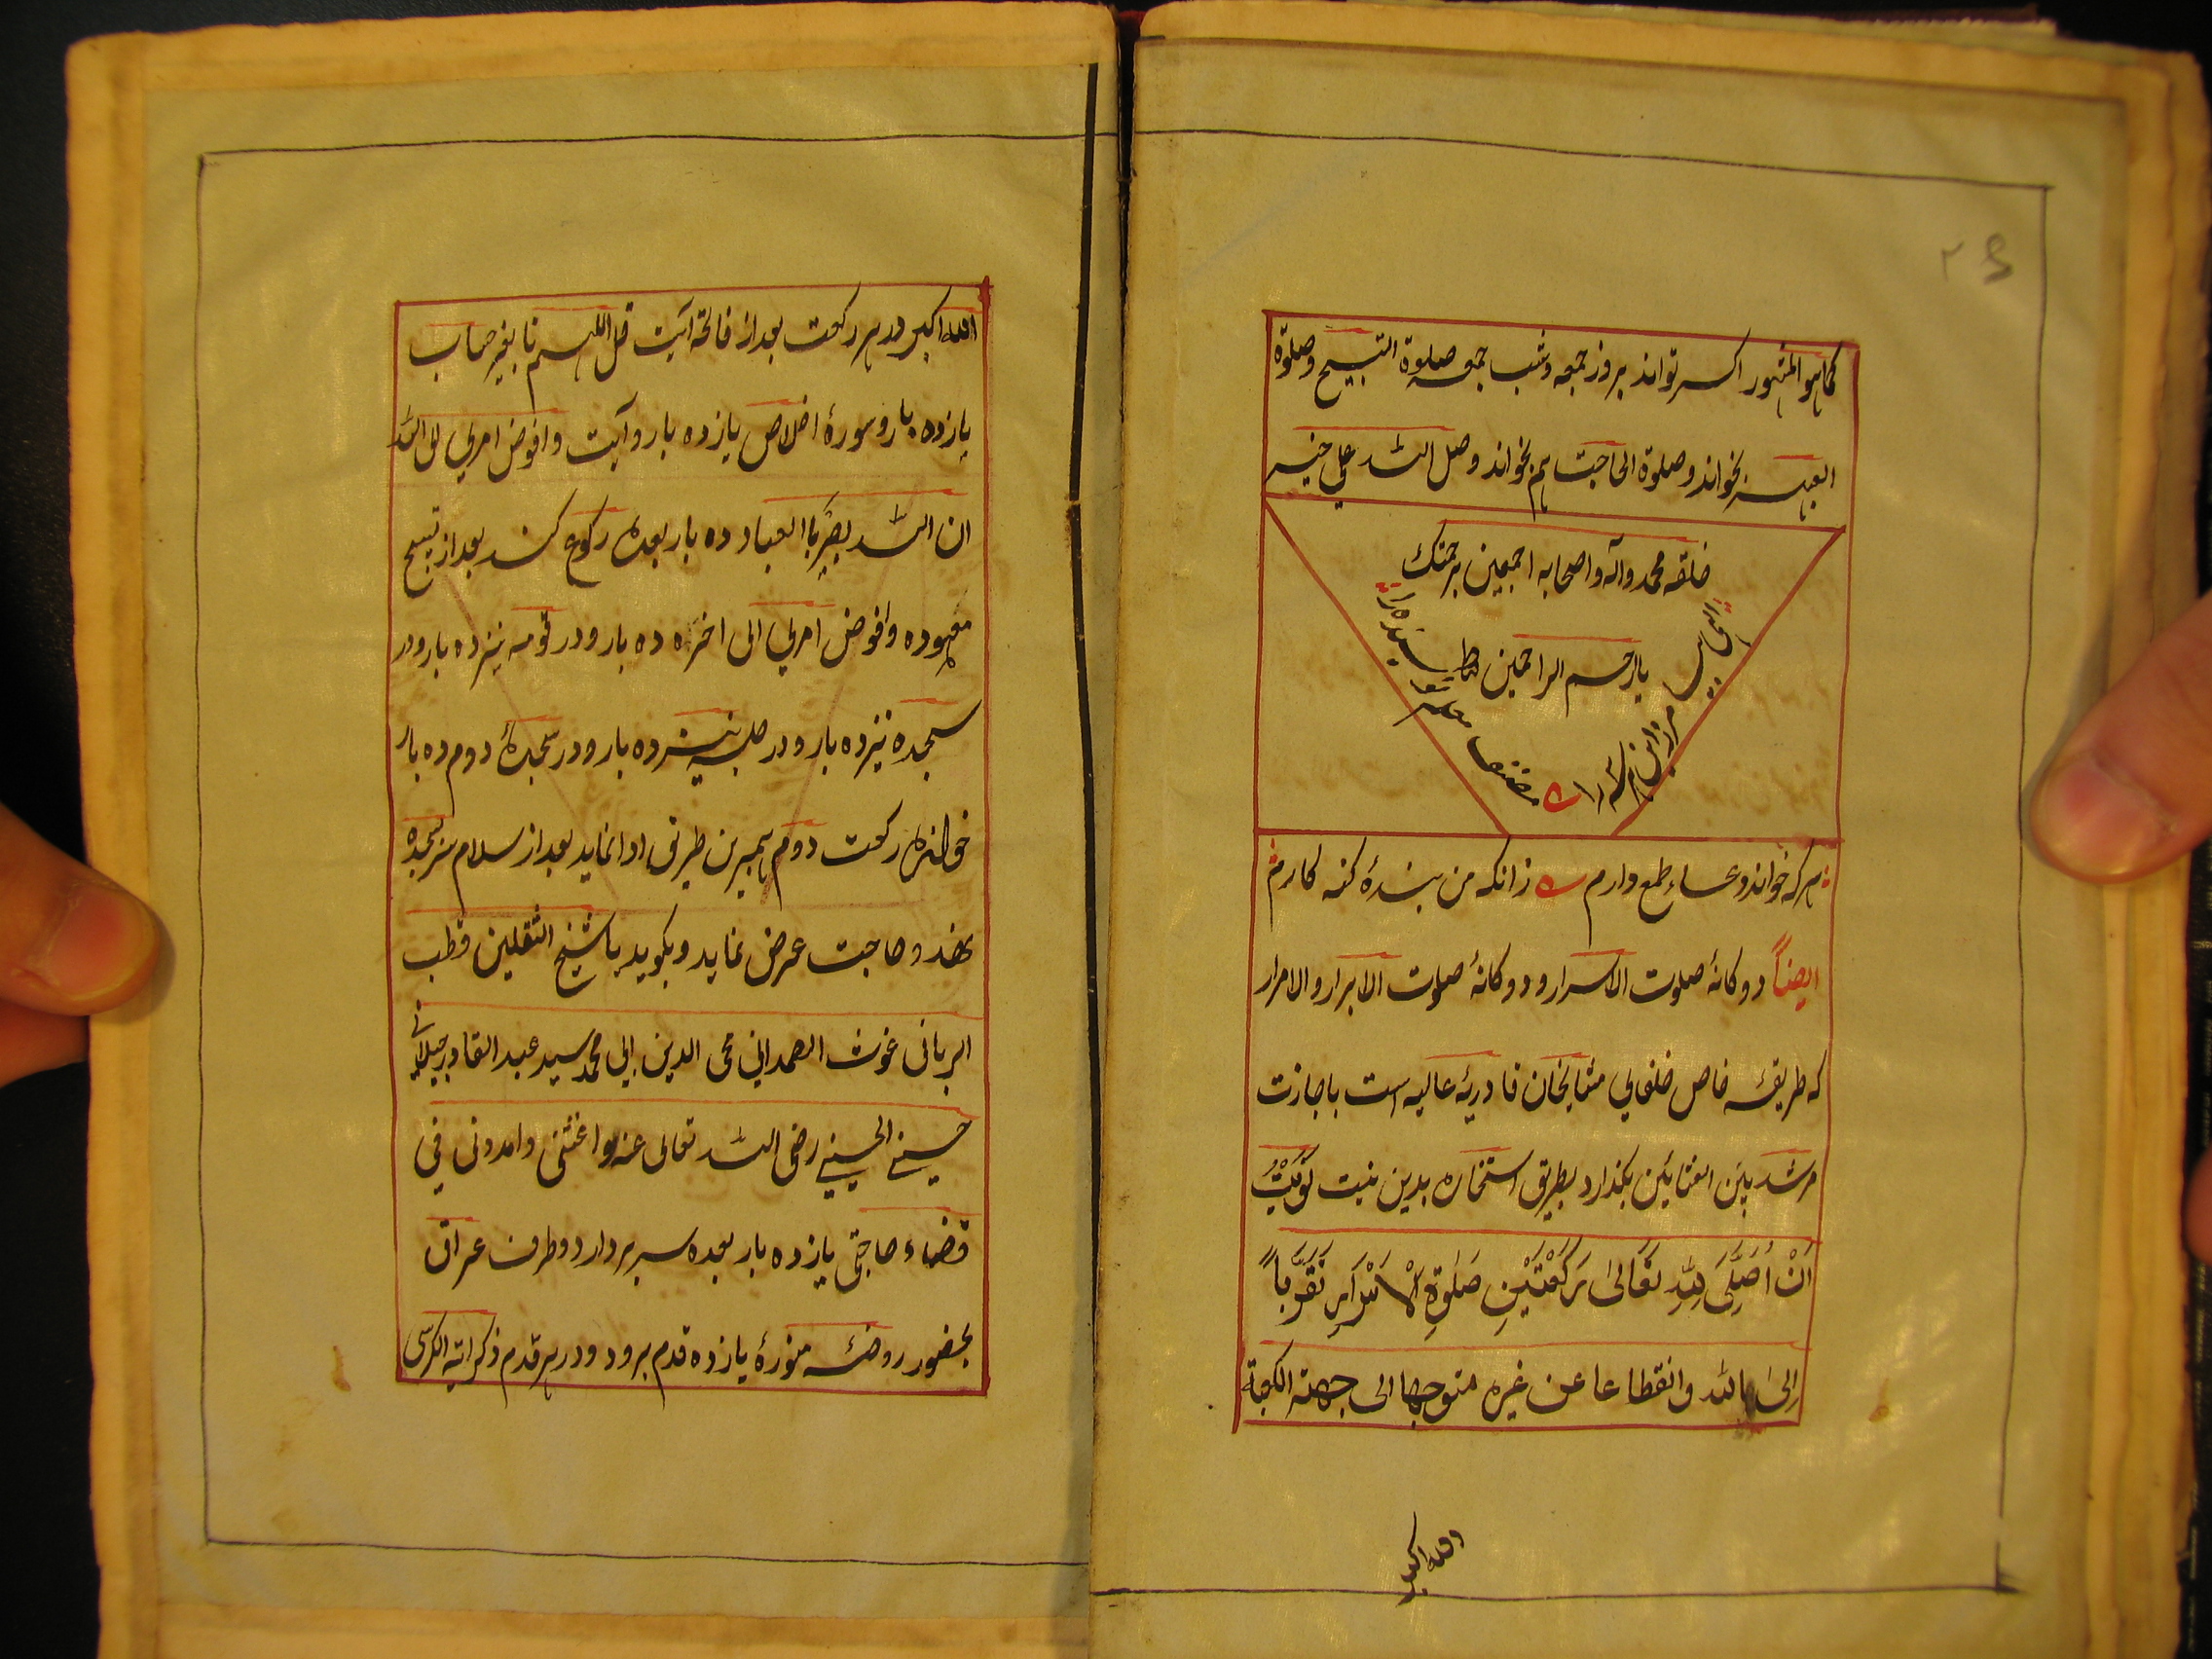 ۲۶
کماهو المشهور اکر تواند بروز جمعه وشب جمعه صلوة التسبیح وصلوة
بخواند وصلوة الحاجت هم بخواند وصل الله علی خیر
خلقه محمد وآله واصحابه اجمعین برحمتک
یا ارحم الراحمین
هرکه خواند دعاء طمع دارم زانکه من بندهٔ کنه کارم
ایضاً دوکانهٔ صلوت الاسرار و دوکانهٔ صلوت الابرار والامرار
که طریقهٔ خاص خلفای مشایخان قادریهٔ عالیه است باجازت
مرشد بین العشائین بکذارد بطریق استخاره بدین نیت نَوَیْتُ
اَنْ اُصَلِّیَ لِلّٰهِ تَعَالیٰ رَکْعَتَیْنِ صَلوٰةِ الْاَسْرَارِ تَقَرُّباً
اِلیٰ الله وانقطاعا عن غیره متوجها الی جهة الکعبة
الله اکبر
الله اکبر در هر رکعت بعد از فاتحه آیت قل اللهم تا بغیر حساب
یازده بار وسورهٔ اخلاص یازده بار وآیت وافوض امری الی الله
ان الله بصیر باالعباد ده بار بعدهٔ رکوع کند بعد از تسبیح
معهوده وافوض امری الی اخره ده بار ودر قومه نیز ده بار ودر
سجده نیز ده بار ودر جلسه نیز ده بار ودر سجدهٔ دوم ده بار
خواند رکعت دوم همبرین طریق ادا نماید بعد از سلام سر بسجده
نهد و حاجت عرض نماید وبکوید یاشیخ الثقلین قطب
الربانی غوث الصمدانی محی الدین ابی محمد سید عبد القادر جیلانی
حسنی الحسینی رضی الله تعالی عنه اغثنی وامددنی فی
قضاء حاجتی یازده بار بعده سر بردارد وطرف عراق
بحضور روضهٔ منورهٔ یازده قدم برود ودر هر قدم ذکر ایة الکرسی